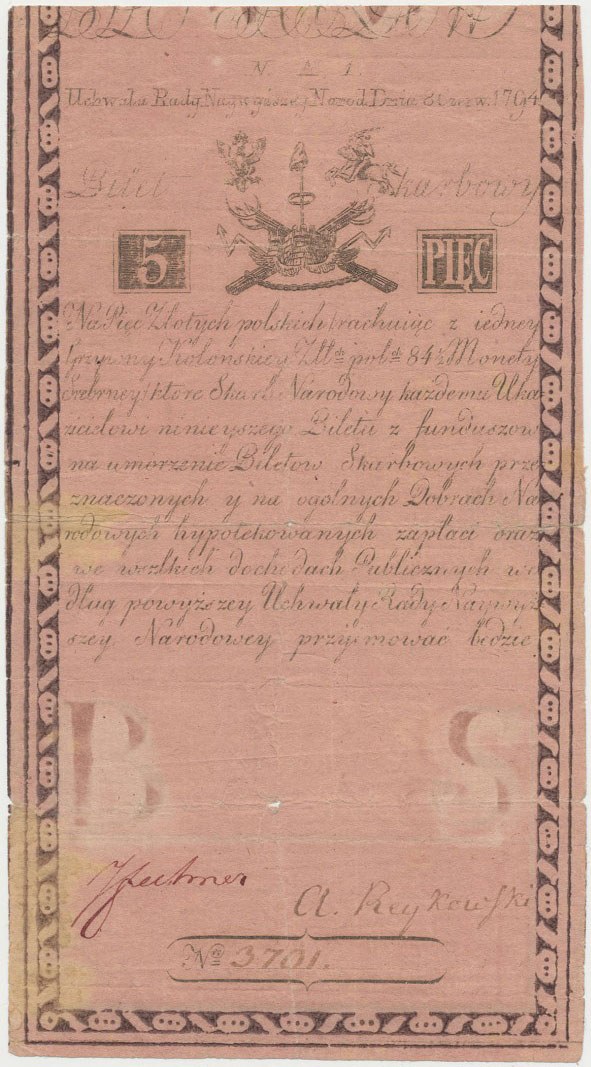 N. A 1.
Uchwała Rady Naywyższey Narod. Dnia 8 Czerw. 1794
Bilet Skarbowy
5 PIĘC
Na Pięc Złotych polskich rachuiąc z iedney
Grzywny Kolońskiey Złł. pol. 84½ Monety
Srebrney które Skarb Narodowy każdemu Uka-
zicielowi ninieyszego Biletu z funduszow
na umorzenie Biletow Skarbowych prze-
znaczonych y na ogolnych Dobrach Na-
rodowych hypotekowanych zapłaci oraz
we wszlkich dochodach Publicznych we-
dług powyższey Uchwały Rady Naywyż-
szey Narodowey przyjmować będzie
B S
A. Reykowski
No 3701.